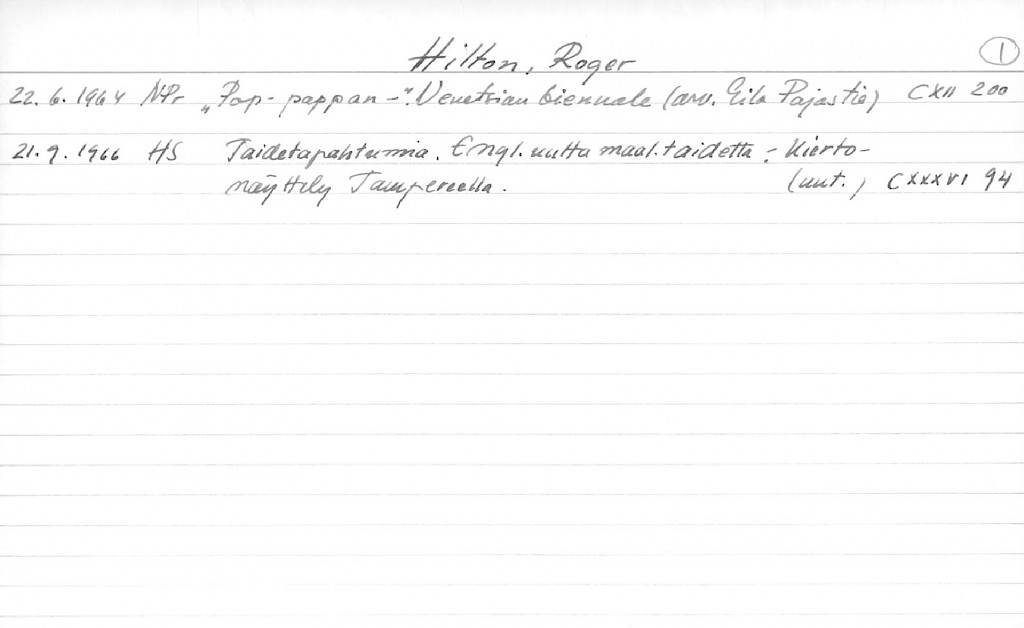 Hilton, Roger 1
22.6.1964 NPr „Pop-pappan-". Venetsian biennale (arv. Eila Pajastie) CXII 200
21.9.1966 HS Taidetapahtumia. Engl. uutta maal.taidetta - Kierto-
näyttely Tampereella. (uut.) CXXXVI 94